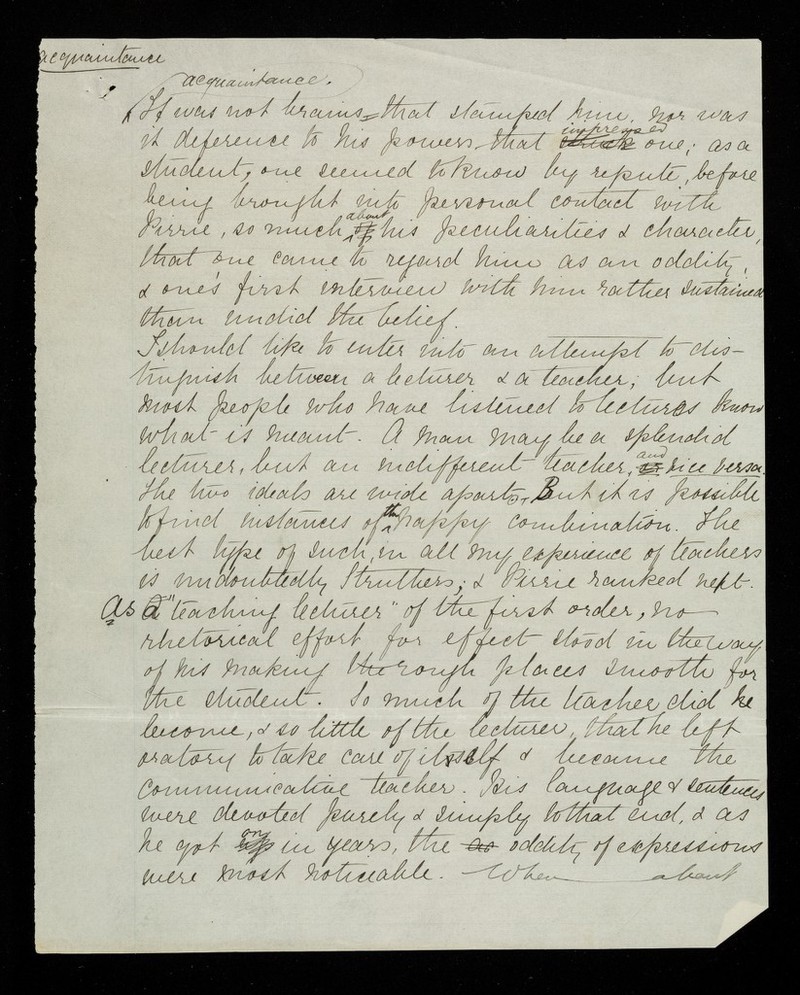 acquaintance
acquaintance.
It was not brains - that stamped him, nor was
impressed
it deference to his powers - that struck one; as a
student, one seemed to know by repute, before
being brought into personal contact with
about
Pirrie, so much of his peculiarities & character,
that one came to regard him as an oddity,
& one's first interview with him rather sustained
than undid the belief.
I should like to enter into an attempt to dis-
tinguish between a lecturer & a teacher; but
most people who have listened to lectures know
what is meant. A man may be a splendid
and
lecturer, but an indifferent teacher, vice versa.
The two ideals are wide apart, But it is possible
the
to find instances of happy combination. The
best type of such, in all my experience of teachers
is undoubtedly Struthers; & Pirrie ranked next.
As a "teaching lecturer" of the first order, no
rhetorical effort for effect stood in the way
of his making the rough places smooth for
the student. So much of the teacher did he
become, & so little of the lecturer, that he left
oratory to take care of itself & became the
communicative teacher. His language & sentences
were devoted purely & simply to that end, & as
on
he got up in years, the as oddity of expressions
were most noticeable. When about